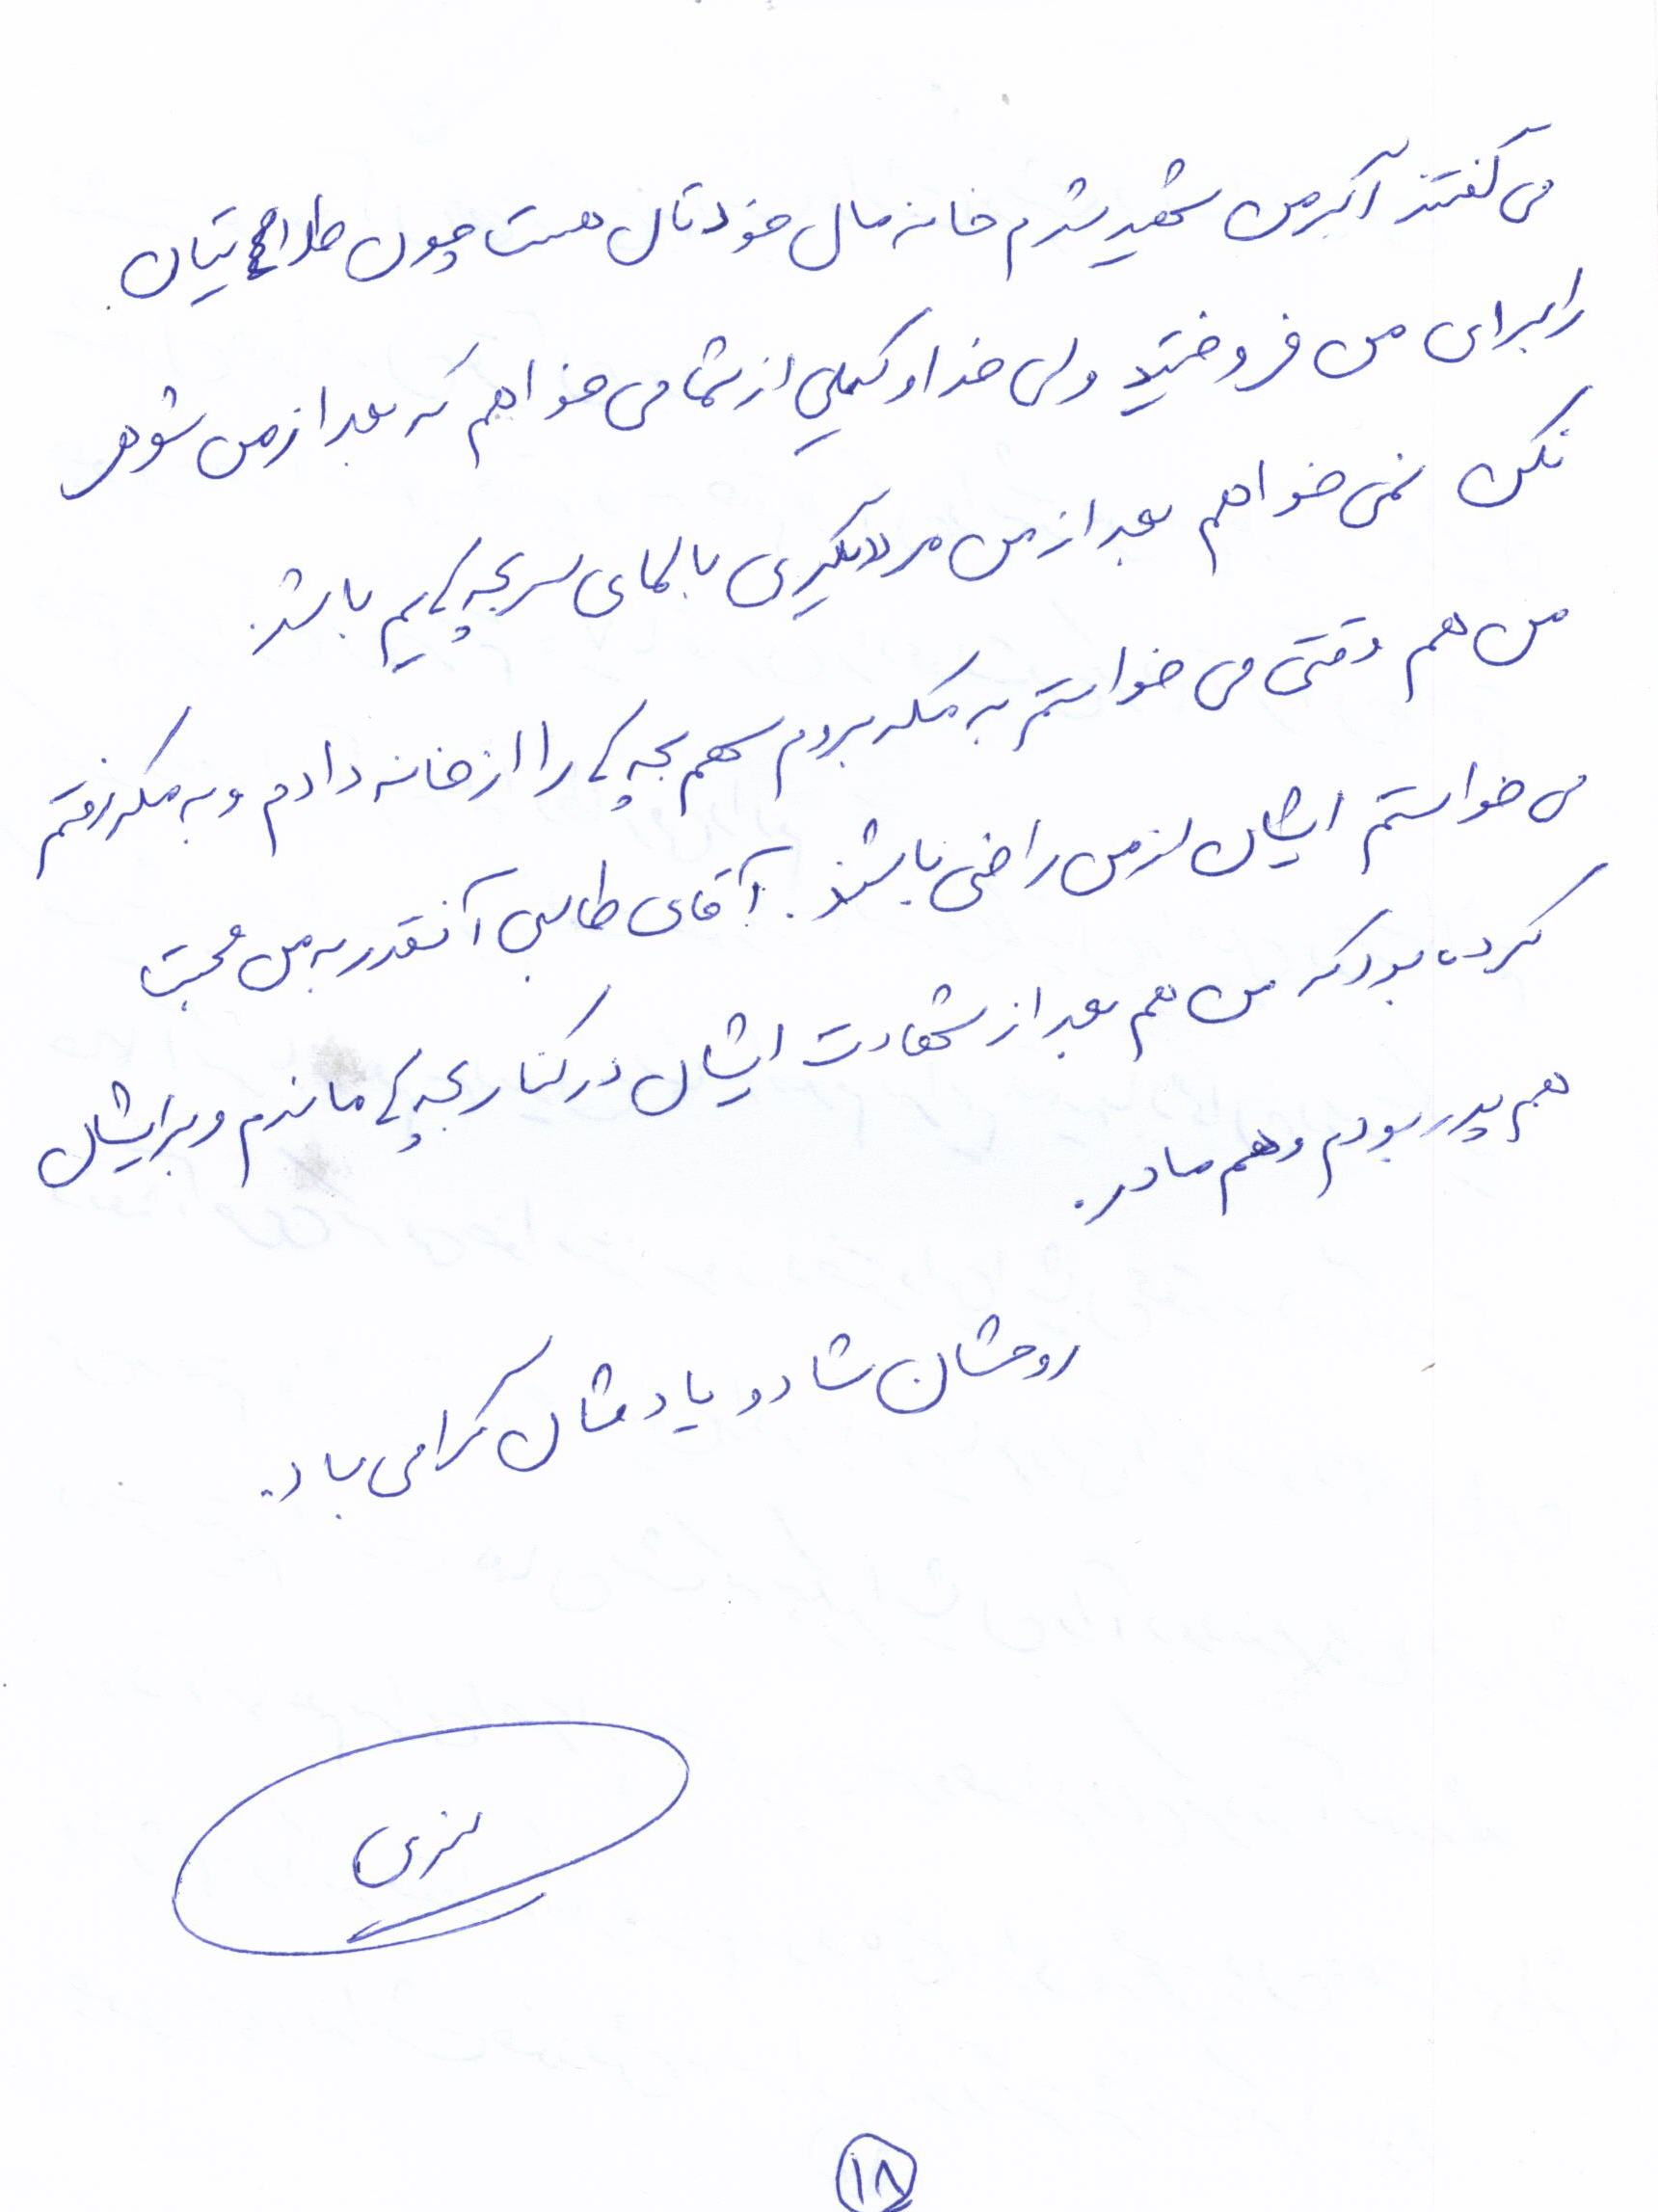 می گفتند اگر من شهید شدم خانه مال خودتان هست چون طلاهایتان
را برای من فروختید ولی خدا وکیلی از شما می خواهم که بعد از من شوهر
نکن نمی خواهم بعد از من مرد دیگری بالای سر بچه هایم باشد.
من هم وقتی می خواستم به مکه بروم سهم بچه ها را از خانه دادم و به مکه رفتم
می خواستم ایشان از من راضی باشند. آقای طالبی آنقدر به من محبت
کرده بود که من هم بعد از شهادت ایشان در کنار بچه ها ماندم و برایشان
هم پدر بودم و هم مادر.
روحشان شاد و یادشان گرامی باد.
۱۸